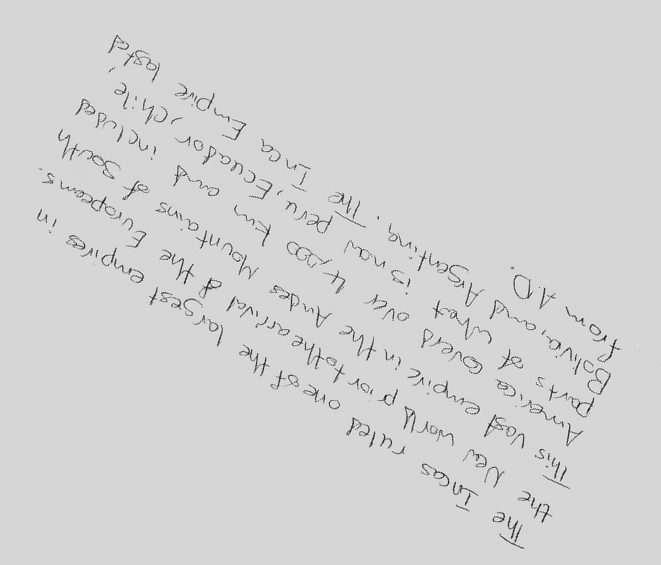 The Incas ruled one of the largest empires in
the New world prior to the arrival of the Europeans.
This Vast empire in the Andes Mountains of South
America covers over 4,000 km and included
parts of what is now peru, Ecuador, chile,
Bolivia, and Argentina. The Inca Empire lasted
from A.D.